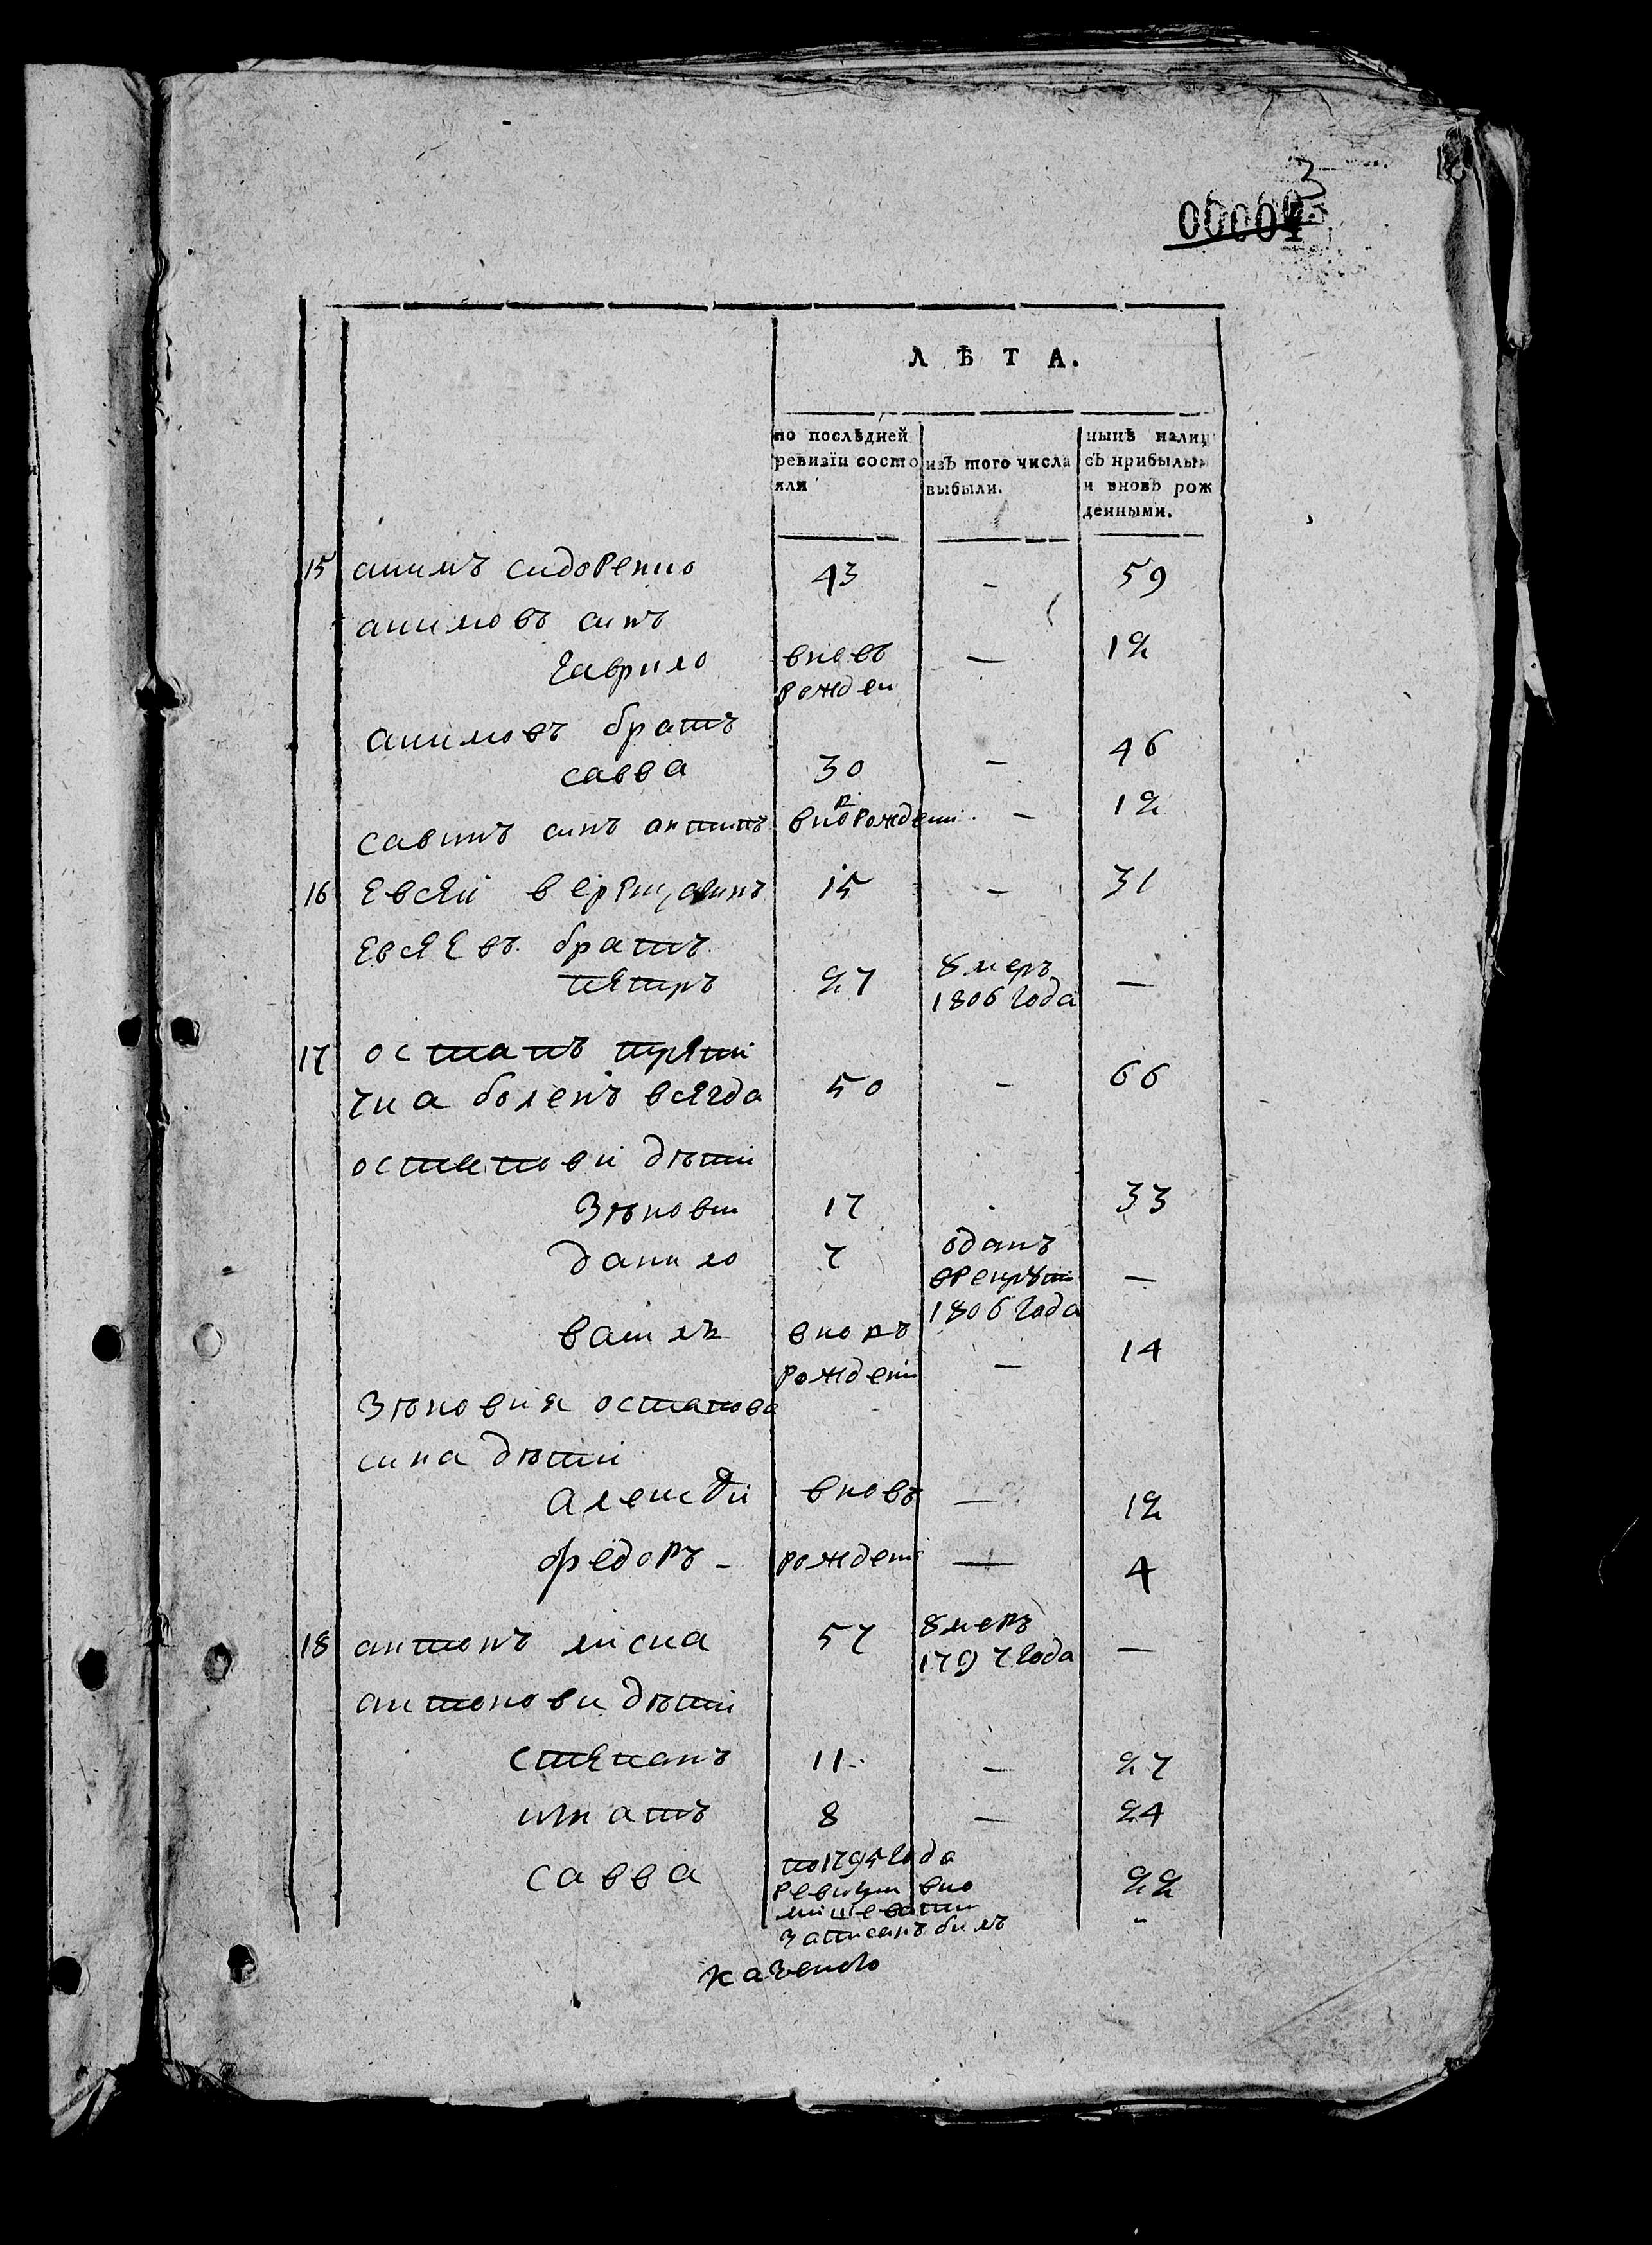 3
00001
ЛѢТА.
по послѣдней
ревизіи состо
яли
изъ того числа
выбыли.
нынѣ налиц
съ прибылым
и вновь рож
денными.
15 акимъ сидоренко 43 – 59
акимовъ синъ
гаврило вновъ – 12
рожден
акимовъ братъ
савва 30 – 46
савинъ синъ антипъ вно рождени – 12
16 Евсей 15 – 31
Евсеевъ братъ
петръ 27 умеръ –
1806 года
17 остапъ
болѣнъ всегда 50 – 66
остапови дѣти
Зѣновии 17 33
данило 7 одапъ –
врекрути
1806 года
василь вновъ 14
рождени –
Зѣновия остапова
сина дѣти
алексѣй вновъ – 12
федоръ – рождени — 4
18 антонъ лиска 57 умеръ –
1797 года
антонови дѣти
степанъ 11 – 27
игнатъ 8 – 24
савва по 1795 года 22
ревизии вно
записанъ билъ
казенно